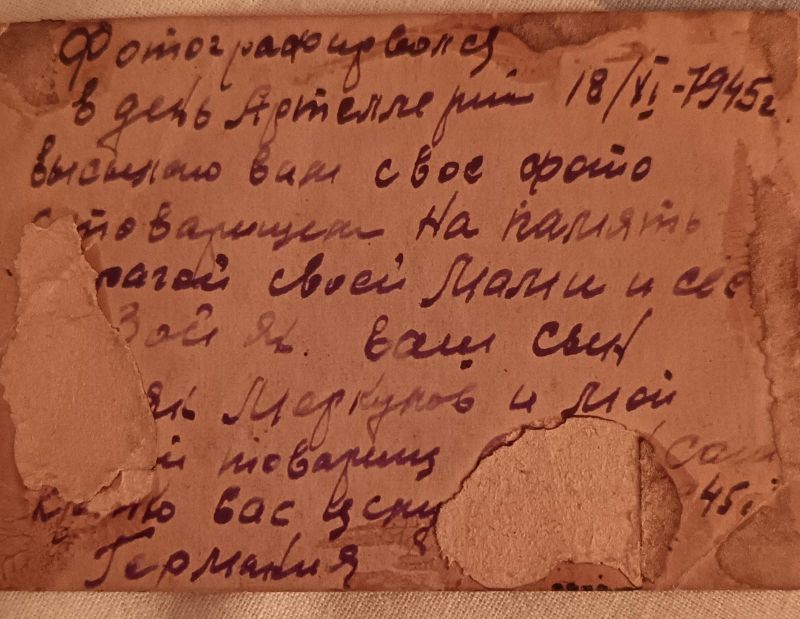 Фотографировался
в день Артеллерий 18/XI-1945г
высылаю вам свое фото
стоварищем На память
рагой своей Мами и сес
Зой Як. ваш сын
як Меркулов и мой
й товарищ Сам
вас 45г
Германия